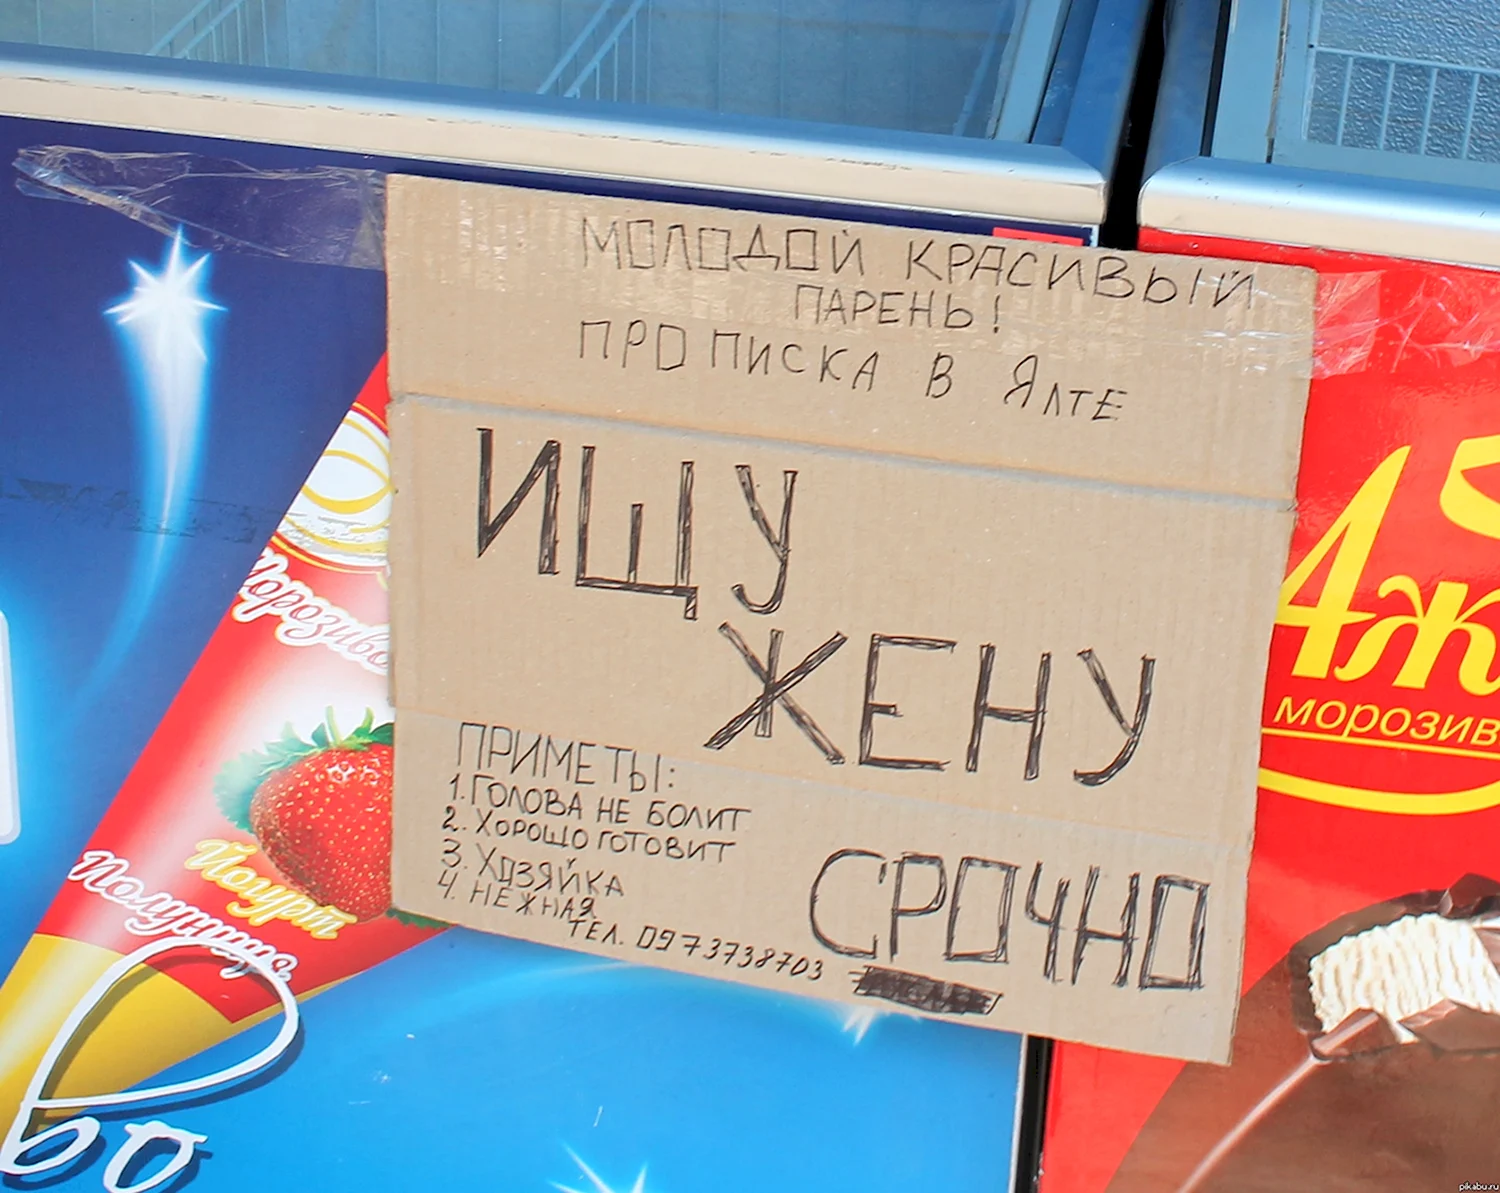 МОЛОДОЙ КРАСИВЫЙ
ПАРЕНЬ!
ПРОПИСКА В ЯЛТЕ
ИЩУ
ЖЕНУ
ПРИМЕТЫ:
1. ГОЛОВА НЕ БОЛИТ
2. ХОРОШО ГОТОВИТ
3. ХОЗЯЙКА
4. НЕЖНАЯ
ТЕЛ. 0973738703
СРОЧНО
Морозиво
Йогурт
Полуниця
во
морозив
pikabu.ru